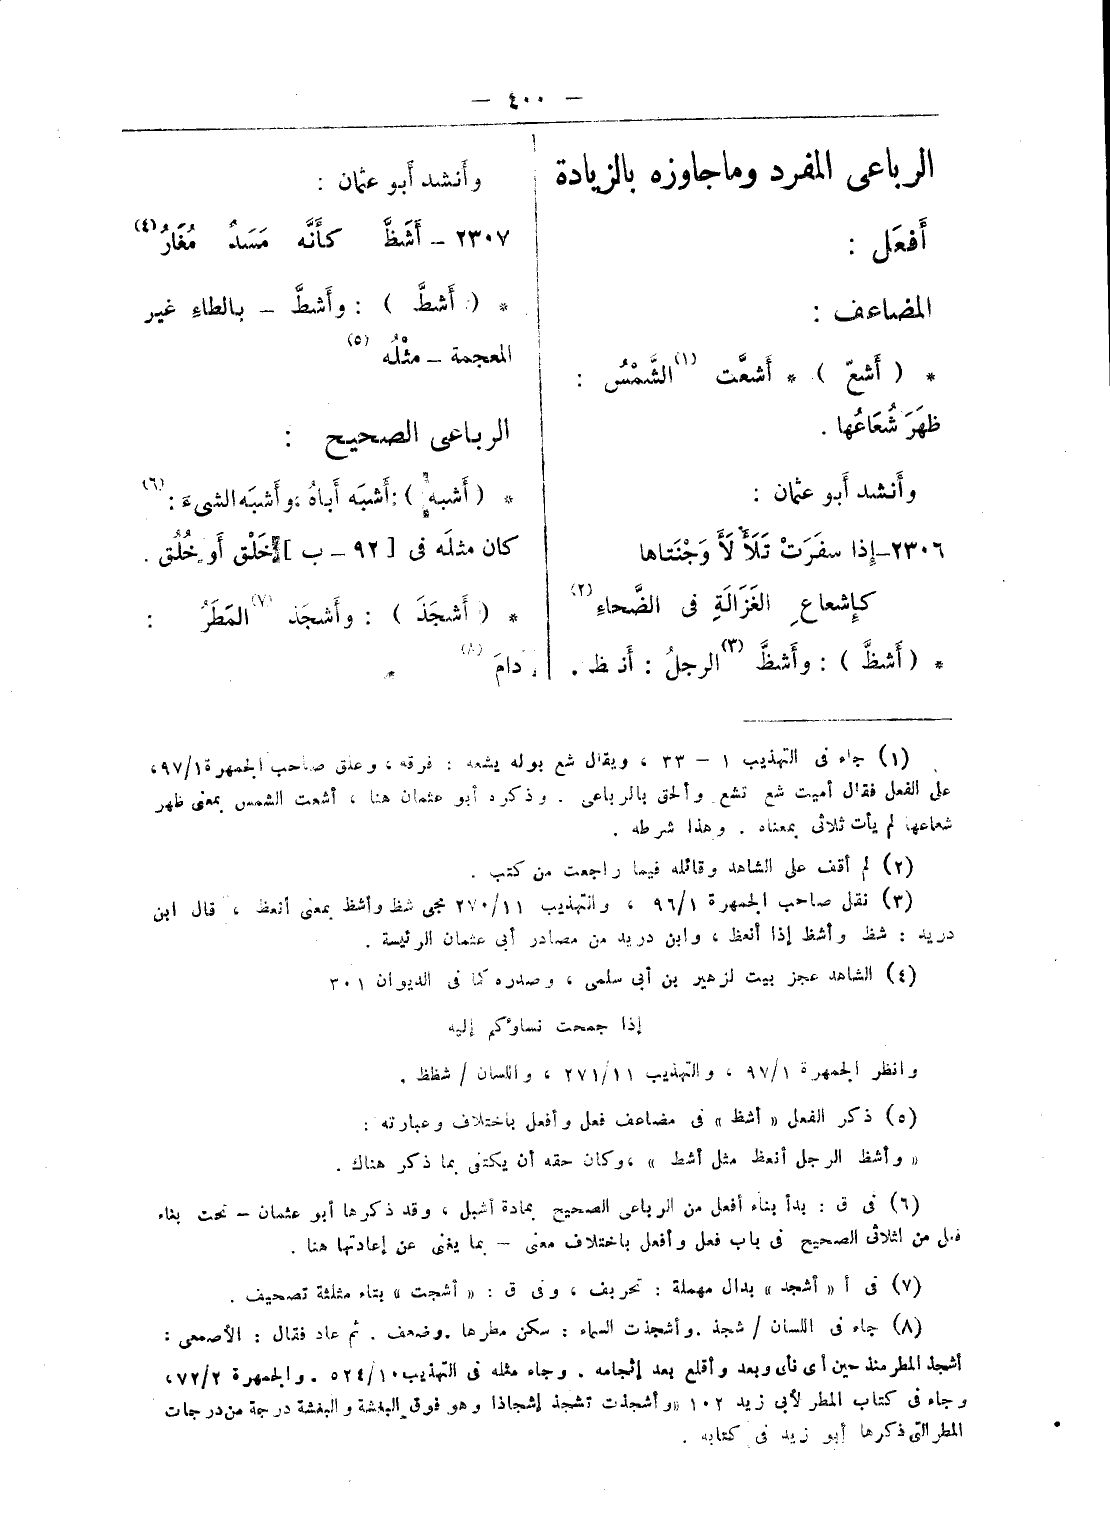 — ٤٠٠ —
الرباعى المفرد وماجاوزه بالزيادة
أَفعَل :
المضاعف :
* ( أَشعّ ) * أَشعَّت (١) الشَّمْسُ :
ظهَرَ شُعَاعُها .
وأَنشد أَبو عثمان :
٢٣٠٦ـ إِذا سفَرَتْ تَلَأْلَأَ وَجْنَتاها
كإِشعاعِ الغَزَالَةِ فى الضَّحاءِ (٢)
* ( أَشظَّ ) : وأَشظَّ (٣) الرجلُ : أَنعظ .
وأَنشد أَبو عثمان :
٢٣٠٧ ـ أَشَظَّ كأَنَّه مَسَدٌ مُغَارُ (٤)
* ( أَشطَّ ) : وأَشطَّ ـ بالطاءِ غير
المعجمة ـ مثْلُه (٥)
الرباعى الصحيح :
* ( أَشبه ) : أَشبَه أَباهُ ، وأَشبَه الشىءَ : (٦)
كان مثلَه فى [ ٩٢ ـ ب ] خَلْق أَو خُلُق .
* ( أَشجَذَ ) : وأَشجَذ (٧) المَطَرُ :
دامَ (٨) .
(١) جاء فى التهذيب ١ – ٣٣ ، ويقال شع بوله يشعه : فرقه ، وعلق صاحب الجمهرة ٩٧/١،
على الفعل فقال أميت شع تشع وألحق بالرباعى . وذكره أبو عثمان هنا ، أشعت الشمس بمعنى ظهر
شعاعها لم يأت ثلاثى بمعناه . وهذا شرطه .
(٢) لم أقف على الشاهد وقائله فيما راجعت من كتب .
(٣) نقل صاحب الجمهرة ٩٦/١ ، والتهذيب ٢٧٠/١١ مجى شظ وأشظ بمعنى أنعظ ، قال ابن
دريد : شظ وأشظ إذا أنعظ ، وابن دريد من مصادر أبى عثمان الرئيسة .
(٤) الشاهد عجز بيت لزهير بن أبى سلمى ، وصدره كما فى الديوان ٣٠١
إذا جمحت نساؤكم إليه
وانظر الجمهرة ٩٧/١ ، والتهذيب ٢٧١/١١ ، واللسان / شظظ .
(٥) ذكر الفعل « أشظ » فى مضاعف فعل وأفعل باختلاف وعبارته :
« وأشظ الرجل أنعظ مثل أشط » ، وكان حقه أن يكتفى بما ذكر هناك .
(٦) فى ق : بدأ بناء أفعل من الرباعى الصحيح بمادة أشبل ، وقد ذكرها أبو عثمان – تحت بناء
فعل من الثلاثى الصحيح فى باب فعل وأفعل باختلاف معنى – بما يغنى عن إعادتها هنا .
(٧) فى أ « أشجد » بدال مهملة : تحريف ، وفى ق : « أشجت » بتاء مثلثة تصحيف .
(٨) جاء فى اللسان / شجذ . وأشجذت السماء : سكن مطرها . وضعف . ثم عاد فقال : الأصمعى :
أشجذ المطر منذ حين أى نأى وبعد وأقلع بعد إثجامه . وجاء مثله فى التهذيب ٥٢٤/١٠ . والجمهرة ٧٢/٢ ،
وجاء فى كتاب المطر لأبى زيد ١٠٢ «وأشجذت تشجذ إشجاذا وهو فوق البغشة والبغشة درجة من درجات
المطر التى ذكرها أبو زيد فى كتابه .